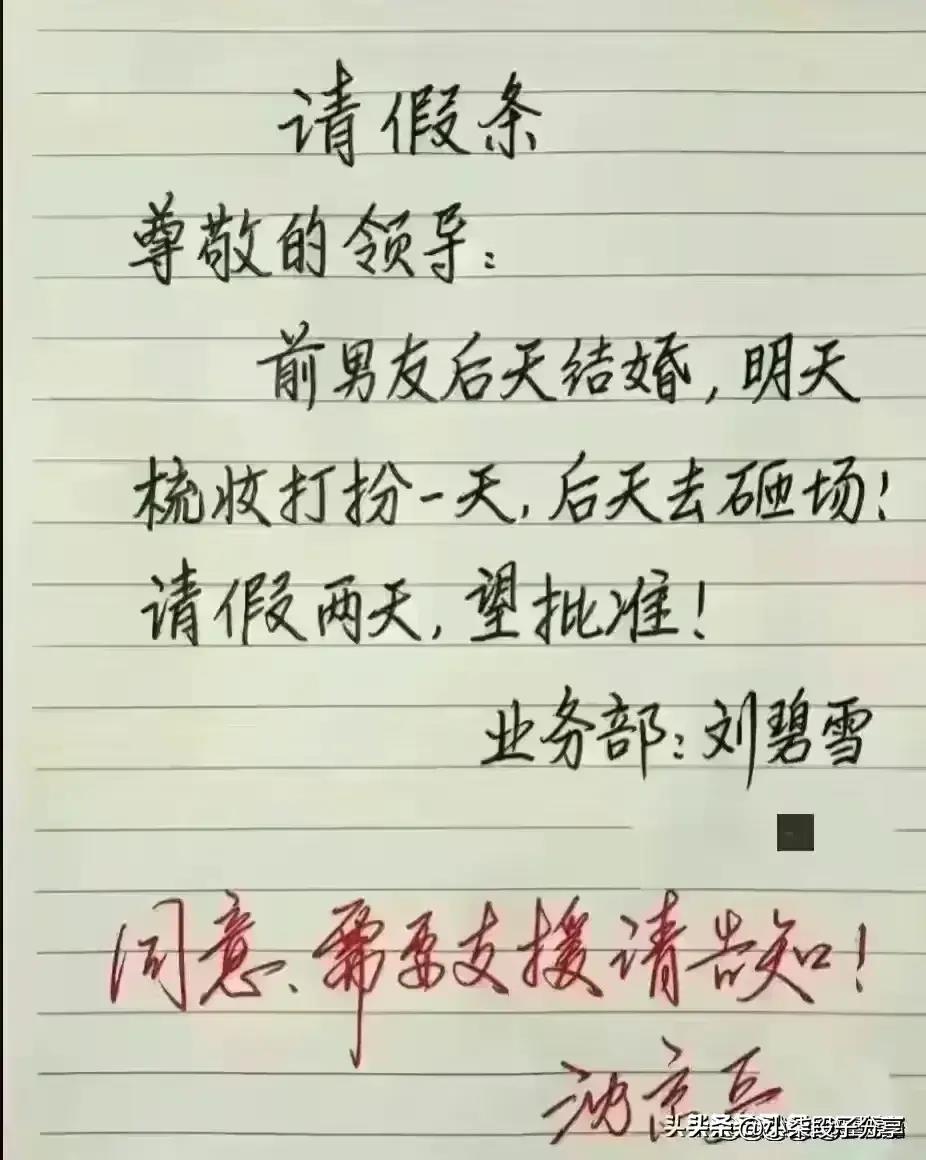 请假条
尊敬的领导：
前男友后天结婚，明天
梳妆打扮一天，后天去砸场！
请假两天，望批准！
业务部：刘碧雪
同意、需要支援请告知！
头条@小柒段子分享